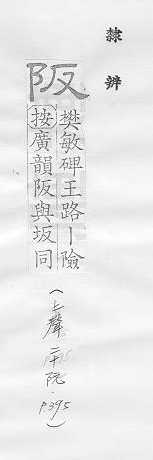 隸辨
阪
樊敏碑王路丨險
按廣韻阪與坂同
(上聲 二十阮. P395)